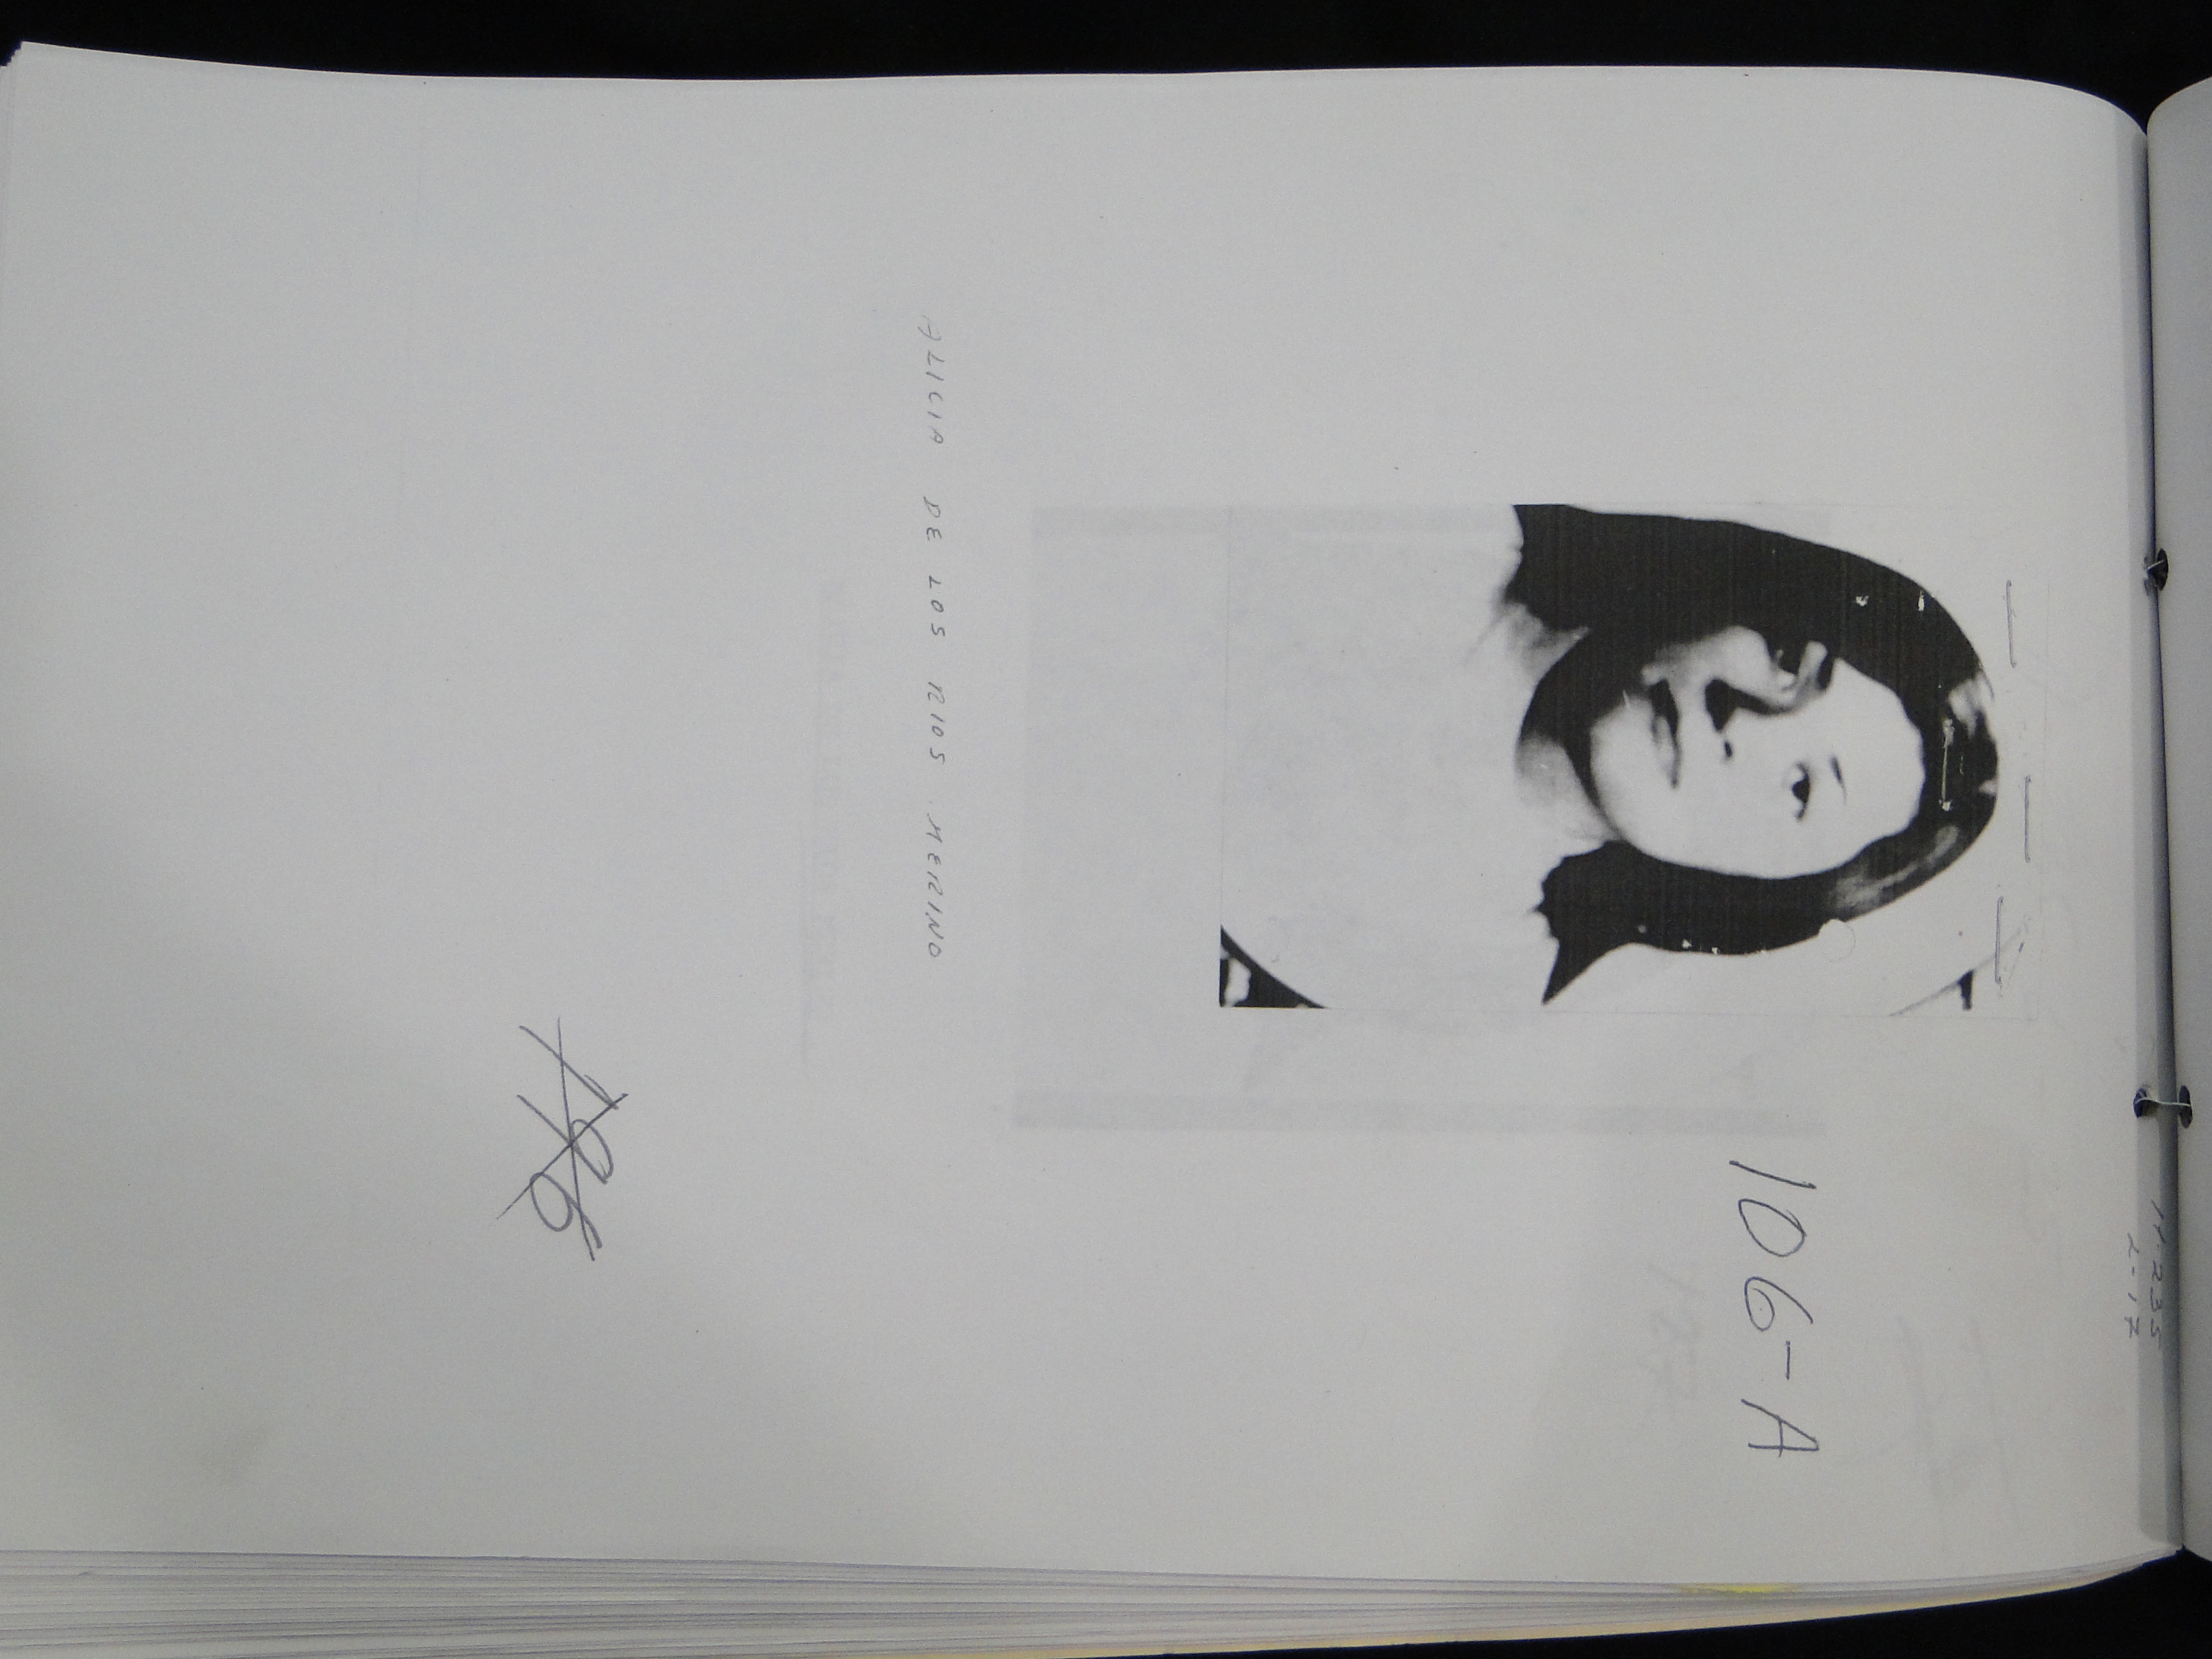 H-235
L-17
106-A
ALICIA DE LOS RIOS MERINO
196